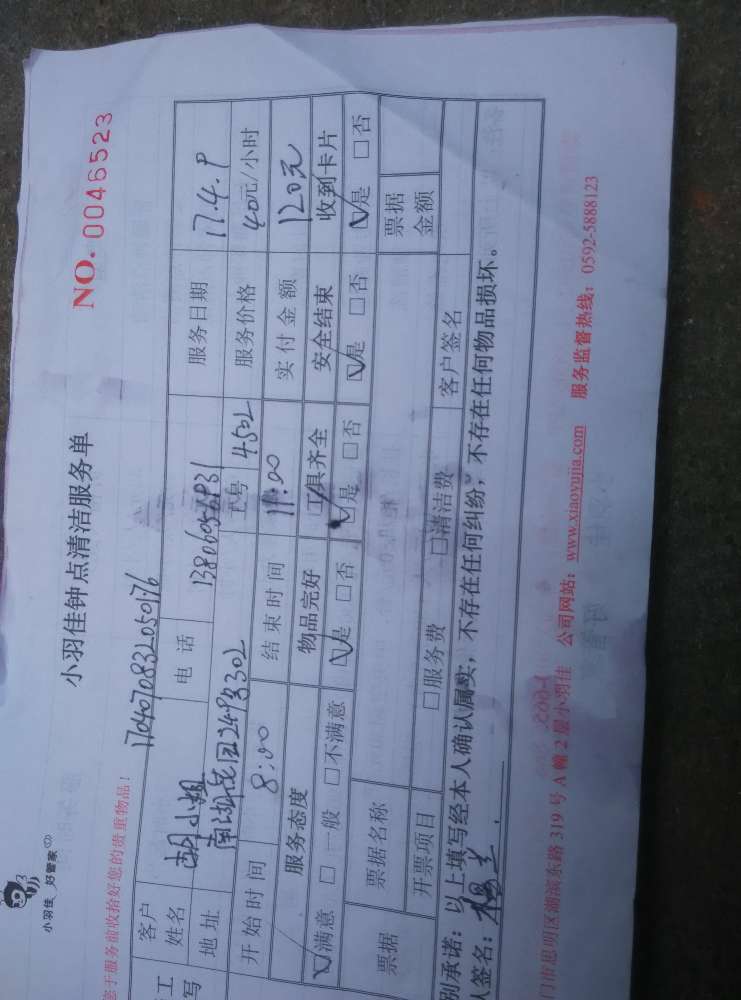 小羽佳 好管家
小羽佳钟点清洁服务单
NO. 0046523
您于服务前收拾好您的贵重物品!
客户姓名 胡小姐 电话 服务日期 17.4.9
地址 工号 4502 服务价格 40元/小时
开始时间 8:00 结束时间 11:00 实付金额 120元
服务态度 物品完好 工具齐全 安全结束 收到卡片
☑满意 □一般 □不满意 ☑是 □否 ☑是 □否 ☑是 □否 ☑是 □否
票据 票据名称 票据金额
开票项目 □服务费 □清洁费 客户签名
别承诺:以上填写经本人确认属实,不存在任何纠纷,不存在任何物品损坏。
人签名:
门市思明区湖滨东路 319 号 A 幢 2 层小羽佳 公司网站:www.xiaoyujia.com 服务监督热线:0592-5888123